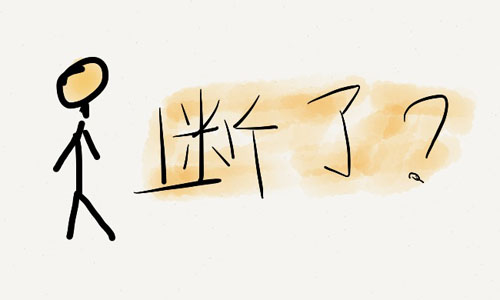 断了?